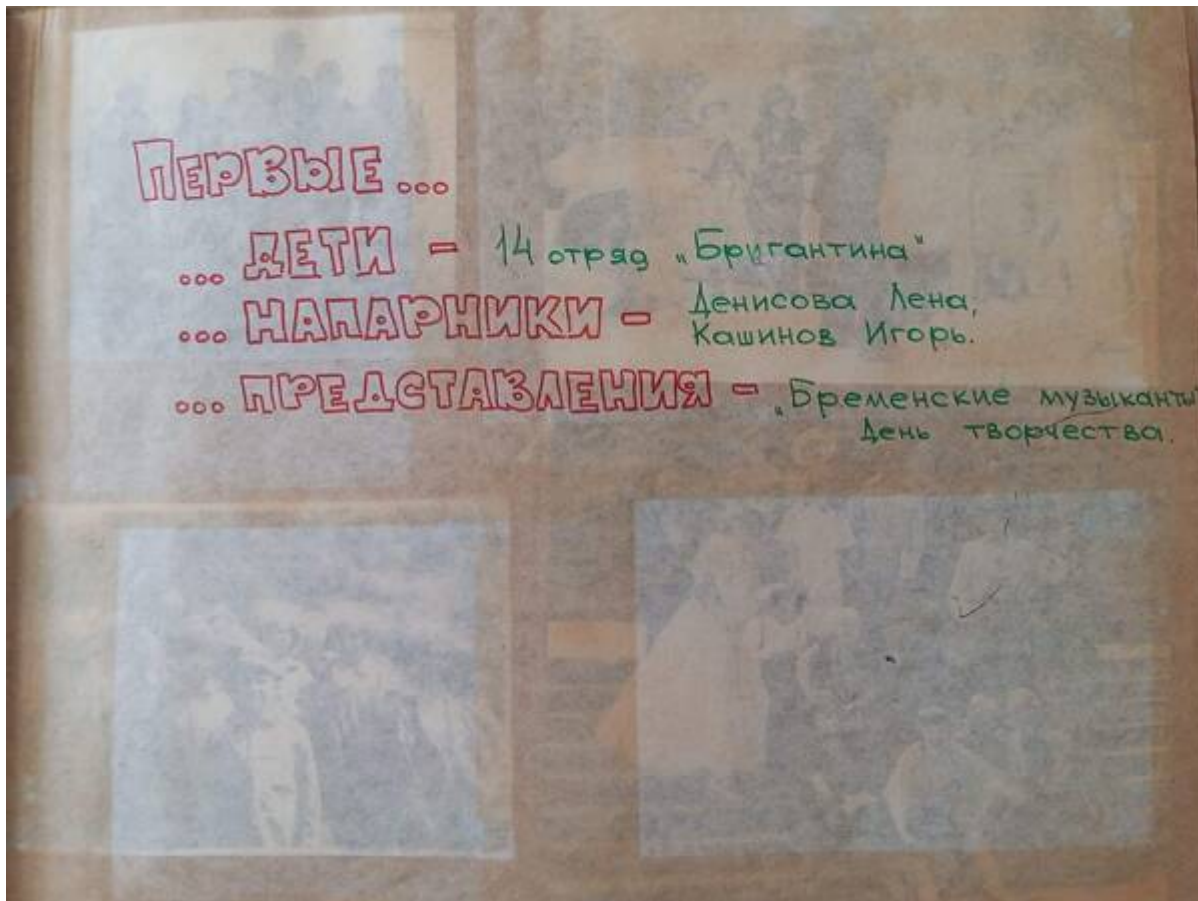 Первые...
... ДЕТИ - 14 отряд „Бригантина"
... НАПАРНИКИ - Денисова Лена,
Кашинов Игорь.
... ПРЕДСТАВЛЕНИЯ - „Бременские музыканты"
День творчества.